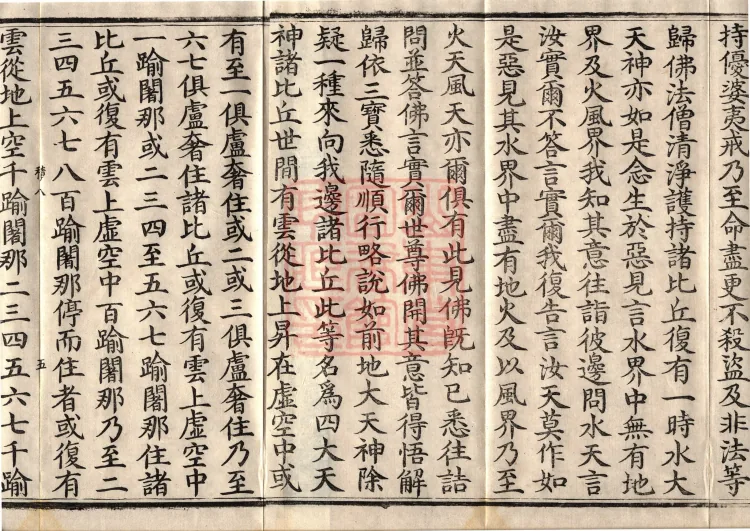 持優婆夷戒乃至命盡更不殺盜及非法等
歸佛法僧清淨護持諸比丘復有一時水大
天神亦如是念生於惡見言水界中無有地
界及火風界我知其意往詣彼邊問水天言
汝實爾不答言實爾我復告言汝天莫作如
是惡見其水界中盡有地火及以風界乃至
火天風天亦爾俱有此見佛既知已悉往詰
問並答佛言實爾世尊佛開其意皆得悟解
歸依三寶悉隨順行略說如前地大天神除
疑一種來向我邊諸比丘此等名爲四大天
神諸比丘世間有雲從地上昇在虛空中或
有至一俱盧奢住或二或三俱盧奢住乃至
六七俱盧奢住諸比丘或復有雲上虛空中
一踰闍那或二三四至五六七踰闍那住諸
比丘或復有雲上虛空中百踰闍那乃至二
三四五六七八百踰闍那停而住者或復有
雲從地上空千踰闍那二三四五六七千踰